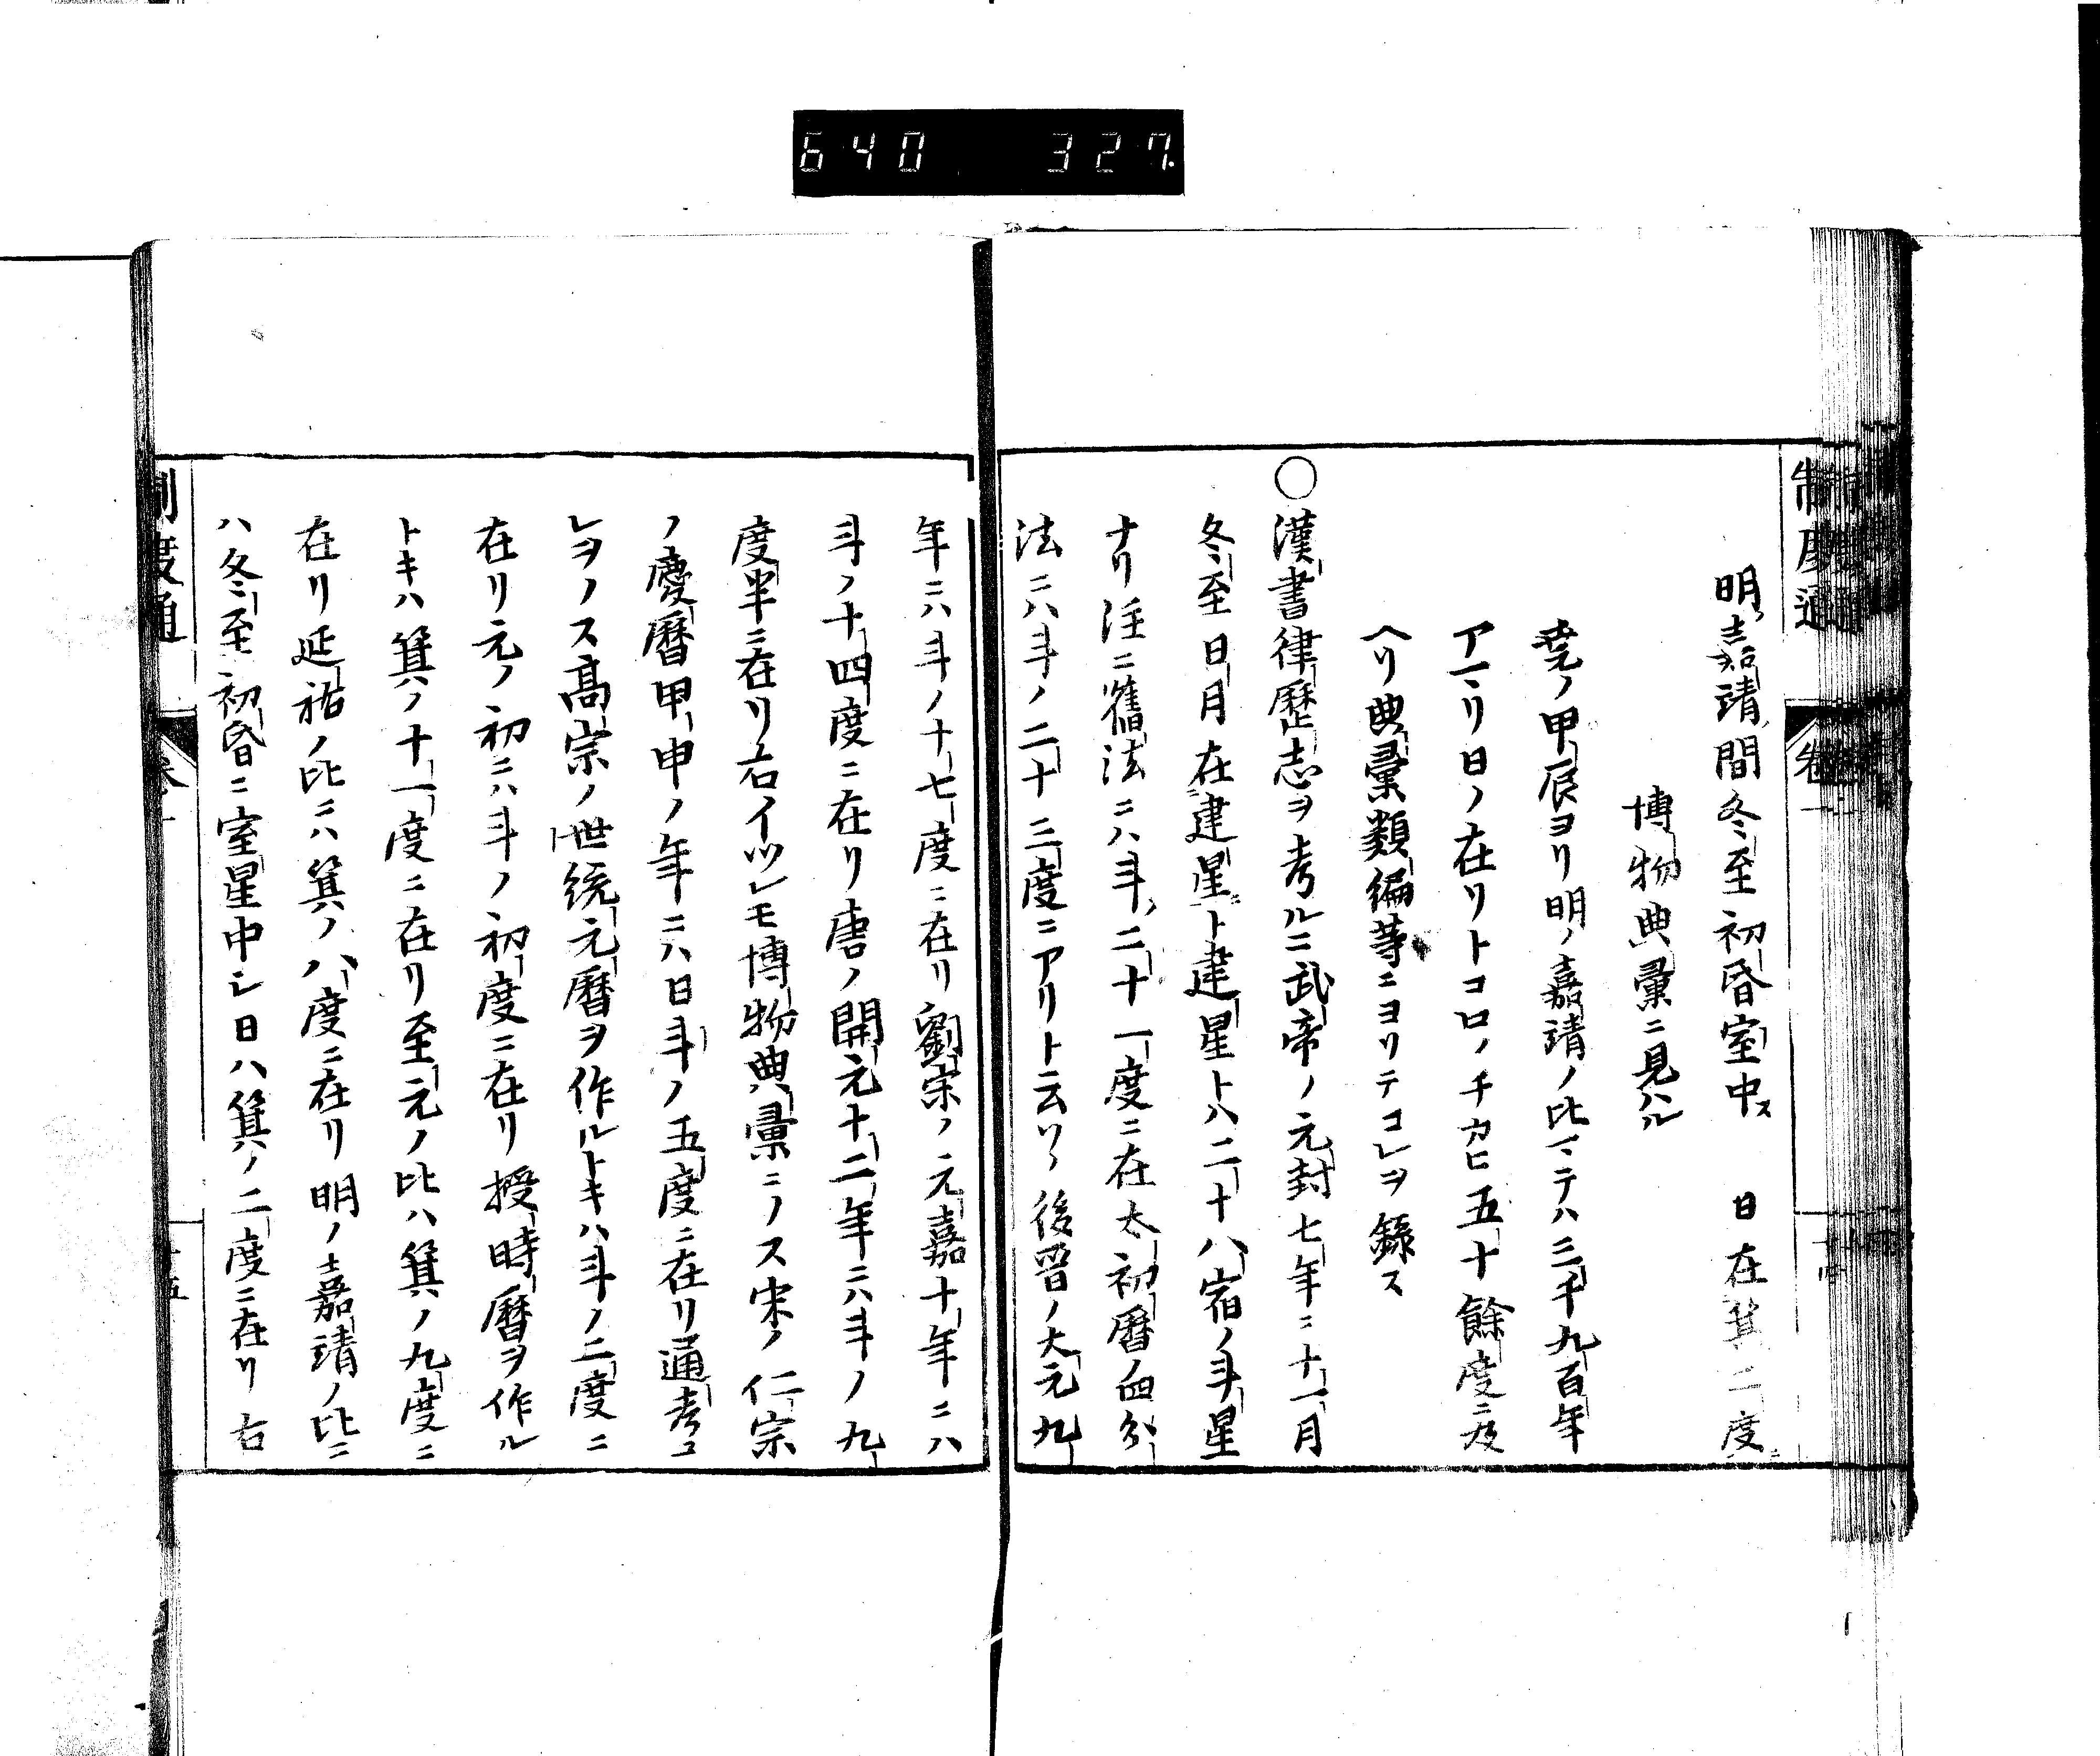 640 327
制度通 卷一 十四
明嘉靖間冬至初昏室中ス 日在箕二度
博物典彙ニ見ハル
堯ノ甲辰ヨリ明ノ嘉靖ノ比マテハ三千九百年
アマリ日ノ在リトコロノチカヒ五十餘度ニ及
ヘリ典彙類編等ニヨリテコレヲ錄ス
○漢書律歷志ヲ考ルニ武帝ノ元封七年ニ十一月
冬至日月在建星ト建星トハ二十八宿ノ斗星
ナリ注ニ舊法ニハ斗二十一度ニ在太初曆四分
法ニハ斗ノ二十三度ニアリト云リ後晉ノ大元九
年ニハ斗ノ十七度ニ在リ劉宋ノ元嘉十年ニハ
斗ノ十四度ニ在リ唐ノ開元十二年ニハ斗ノ九
度半ニ在リ右イツレモ博物典彙ニノス宋ノ仁宗
ノ慶曆甲申ノ年ニハ日斗ノ五度ニ在リ通考コ
レヲノス高宗ノ世統元曆ヲ作ルトキハ斗ノ二度ニ
在リ元ノ初ニハ斗ノ初度ニ在リ授時曆ヲ作ル
トキハ箕ノ十一度ニ在リ至元ノ比ハ箕ノ九度ニ
在リ延祐ノ比ニハ箕ノ八度ニ在リ明ノ嘉靖ノ比ニ
ハ冬至初昏ニ室星中シ日ハ箕ノ二度ニ在リ右
制度通 卷一 十五